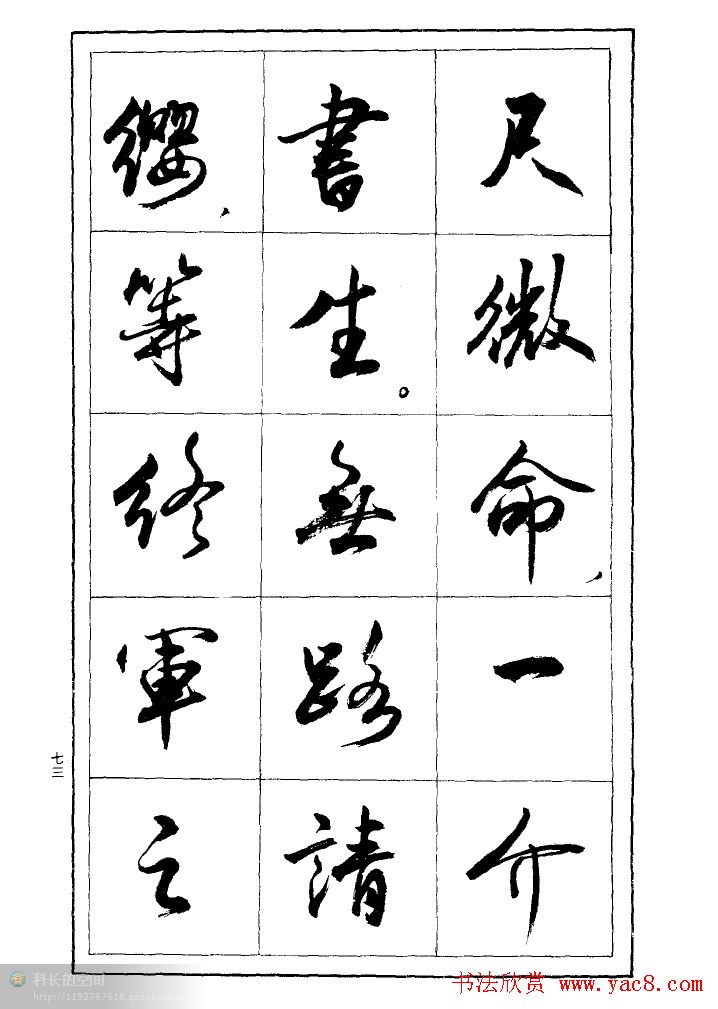 尺微命，一介
書生。無路請
纓，等終軍之
七三
科长的空间
http://1193767618.qzone.qq.com
书法欣赏 www.yac8.com